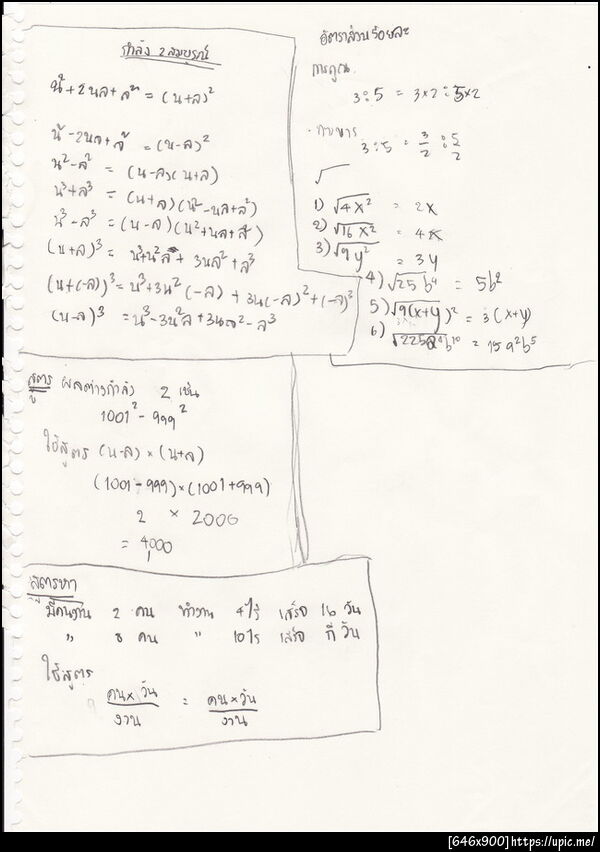 กำลัง 2 สมบูรณ์
น² + 2นล + ล² = (น+ล)²
น² - 2นล + ล² = (น-ล)²
น² - ล² = (น-ล)(น+ล)
น³ + ล³ = (น+ล)(น² - นล + ล²)
น³ - ล³ = (น-ล)(น² + นล + ล²)
(น+ล)³ = น³ + น²ล + 3นล² + ล³
(น+(-ล))³ = น³ + 3น²(-ล) + 3น(-ล)² + (-ล)³
(น-ล)³ = น³ - 3น²ล + 3นล² - ล³
อัตราส่วนร้อยละ
การคูณ
3:5 = 3×2 : 5×2
การหาร
3:5 = 3/2 : 5/2
√
1) √4x² = 2x
2) √16x² = 4x
3) √9y² = 3y
4) √25b⁴ = 5b²
5) √9(x+y)² = 3(x+y)
6) √225a⁴b¹⁰ = 15a²b⁵
สูตร ผลต่างกำลัง 2 เช่น
1001² - 999²
ใช้สูตร (น-ล) × (น+ล)
(1001-999)×(1001+999)
2 × 2000
= 4000
สูตรหา
มีคนงาน 2 คน ทำงาน 4ไร่ เสร็จ 16 วัน
" 8 คน " 10ไร่ เสร็จ กี่ วัน
ใช้สูตร
คน×วัน/งาน = คน×วัน/งาน
[646x900]https://upic.me/